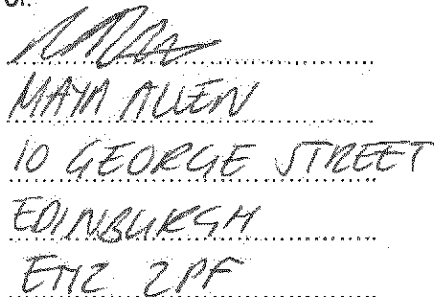 of:
MAYA ALLEN
10 GEORGE STREET
EDINBURGH
EH2 2PF